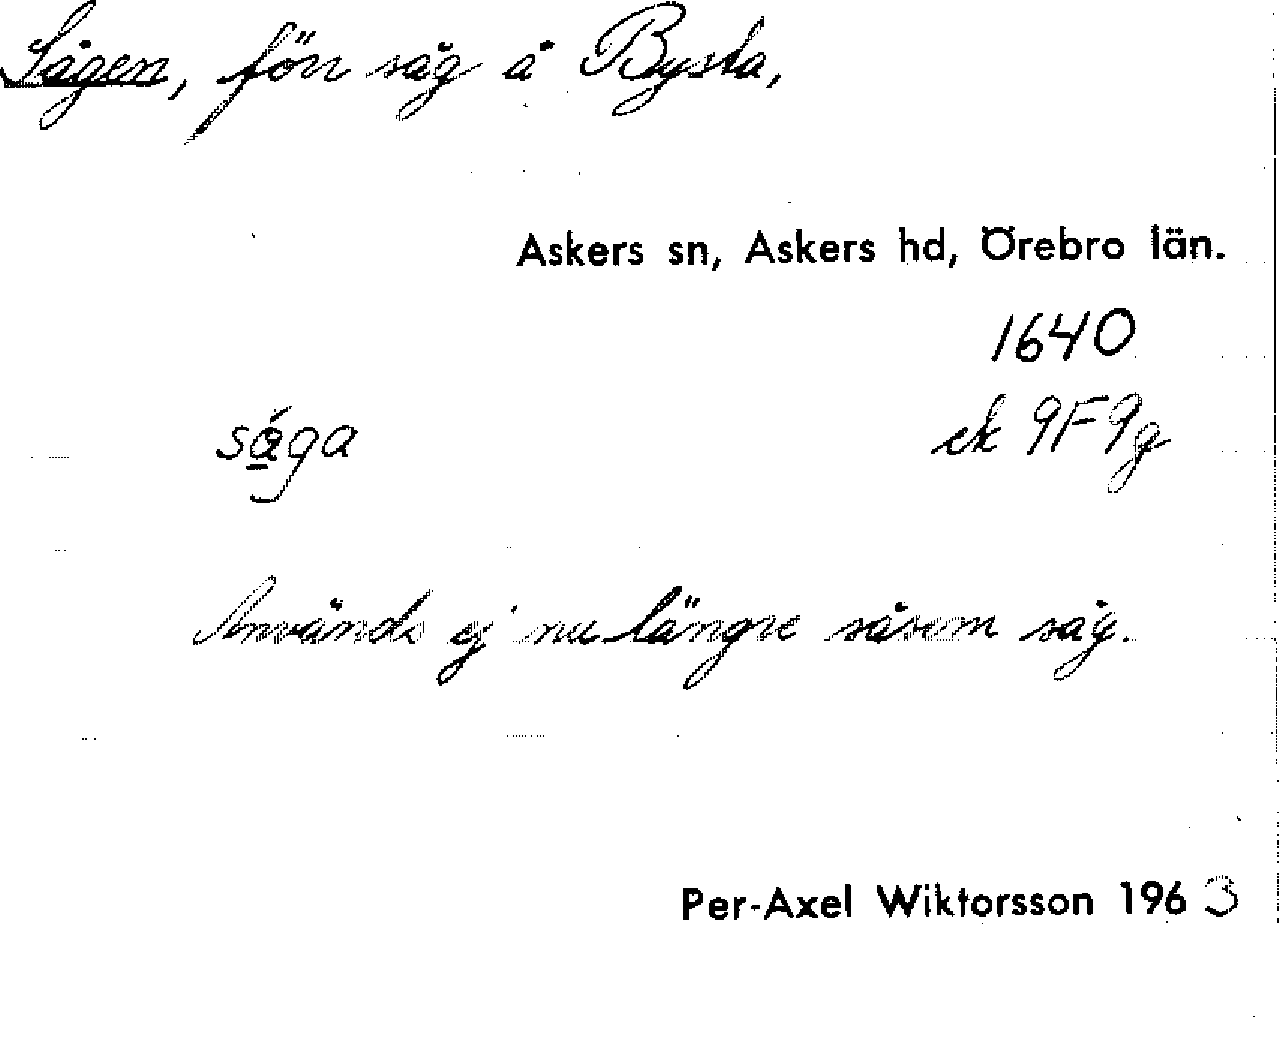 Sågen, förr såg å Bysta,
Askers sn, Askers hd, Örebro län.
1640
såga
ek 9F9g
Används ej nu längre såsom såg.
Per-Axel Wiktorsson 1963